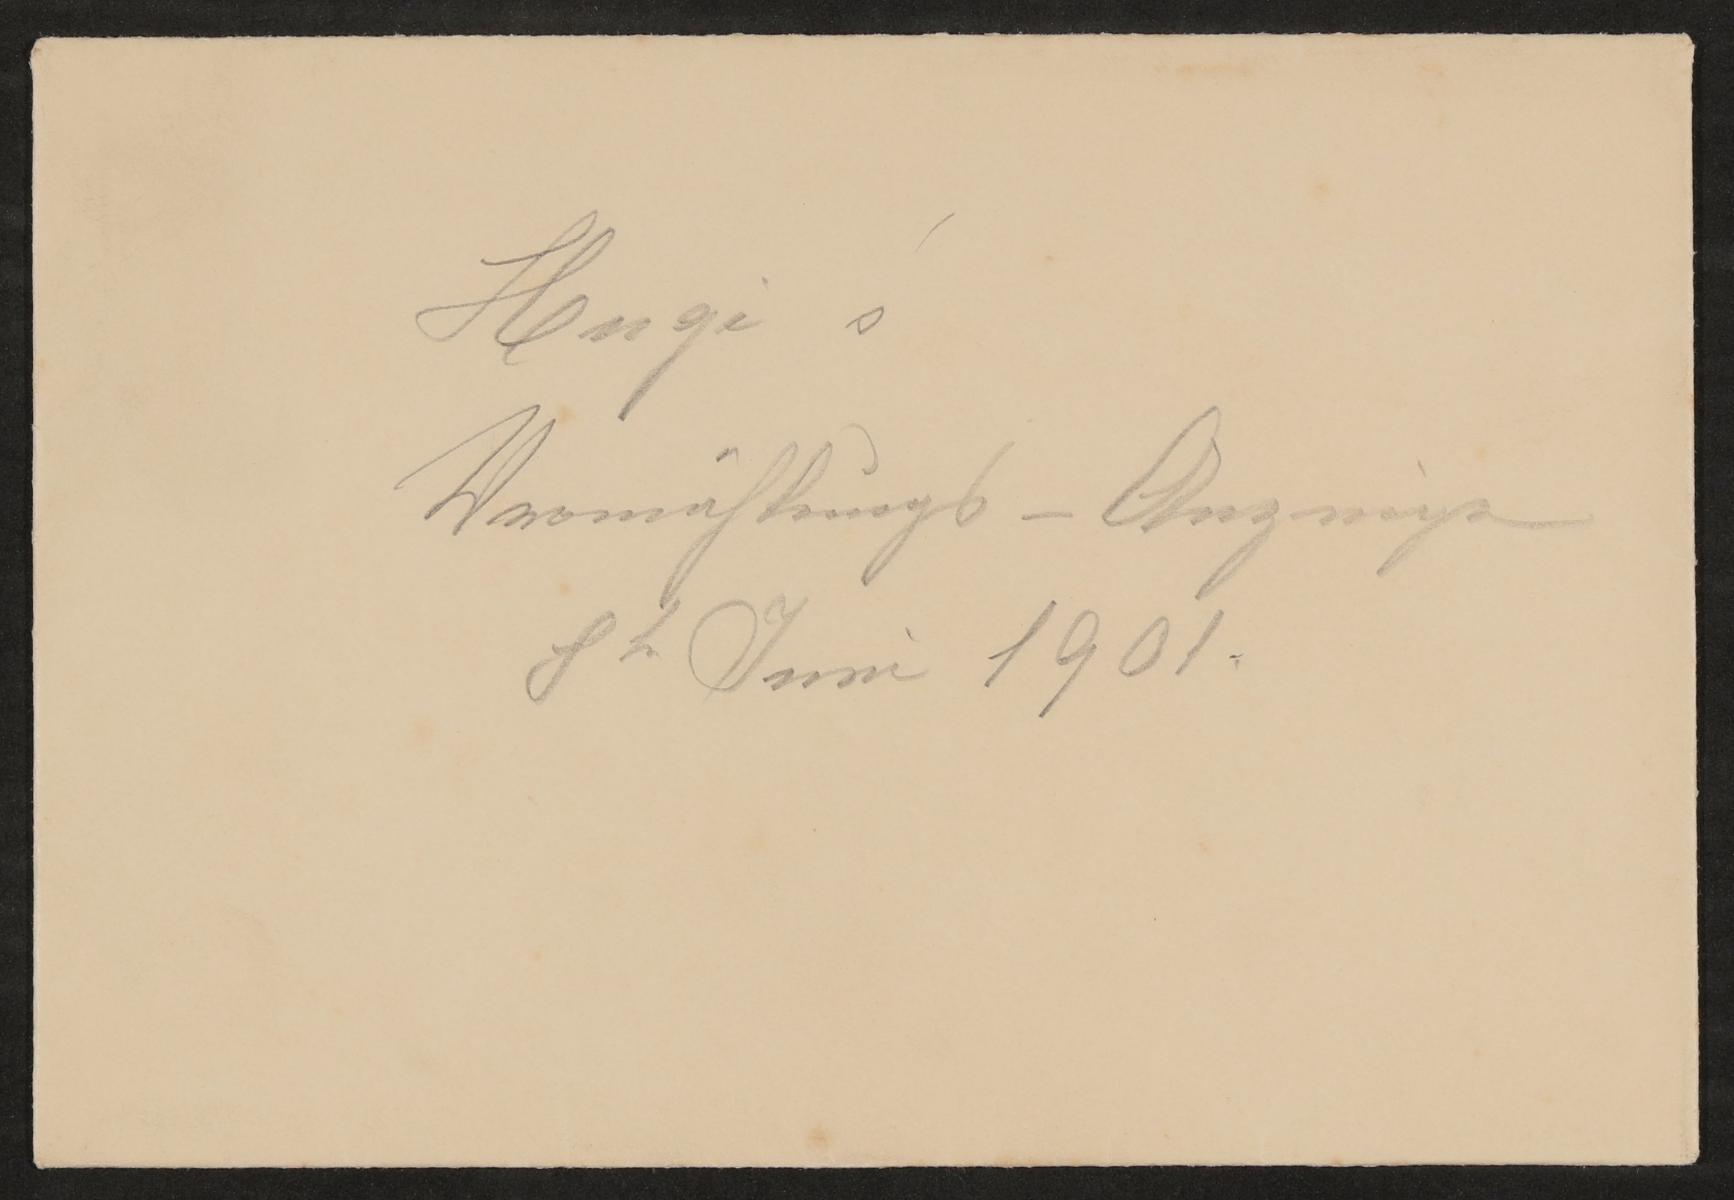 Hugi's
Vermählungs-Anzeige
8t Juni 1901.